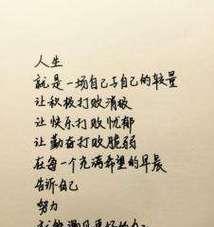 人生
就是一场自己与自己的较量
让积极打败消极
让快乐打败忧郁
让勤奋打败脆弱
在每一个充满希望的早晨
告诉自己
努力